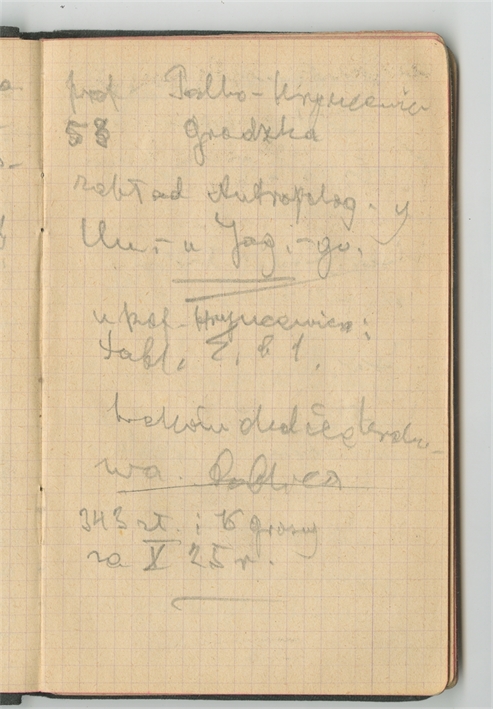 prof Talko-Hryncewicz
53 Grodzka
zakład Antropolog. y
Un.-u Jag.-go.
u prof. Hryncewicza:
tabl. 2, 6 1,
Kraków
wa
343 zł. i 16 groszy
za X 25 r.